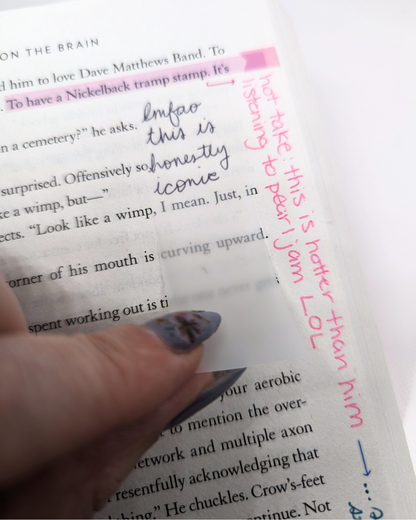 ON THE BRAIN
d him to love Dave Matthews Band. To
. To have a Nickelback tramp stamp. It's
n a cemetery?" he asks.
lmfao
this is
honestly
iconic
surprised. Offensively so
ke a wimp, but—"
ects. "Look like a wimp, I mean. Just, in
orner of his mouth is curving upward.
spent working out is ti
your aerobic
to mention the over-
etwork and multiple axon
resentfully acknowledging that
thing." He chuckles. Crow's-feet
ntinue. Not
hot take: this is hotter than him
listening to pearl jam LOL